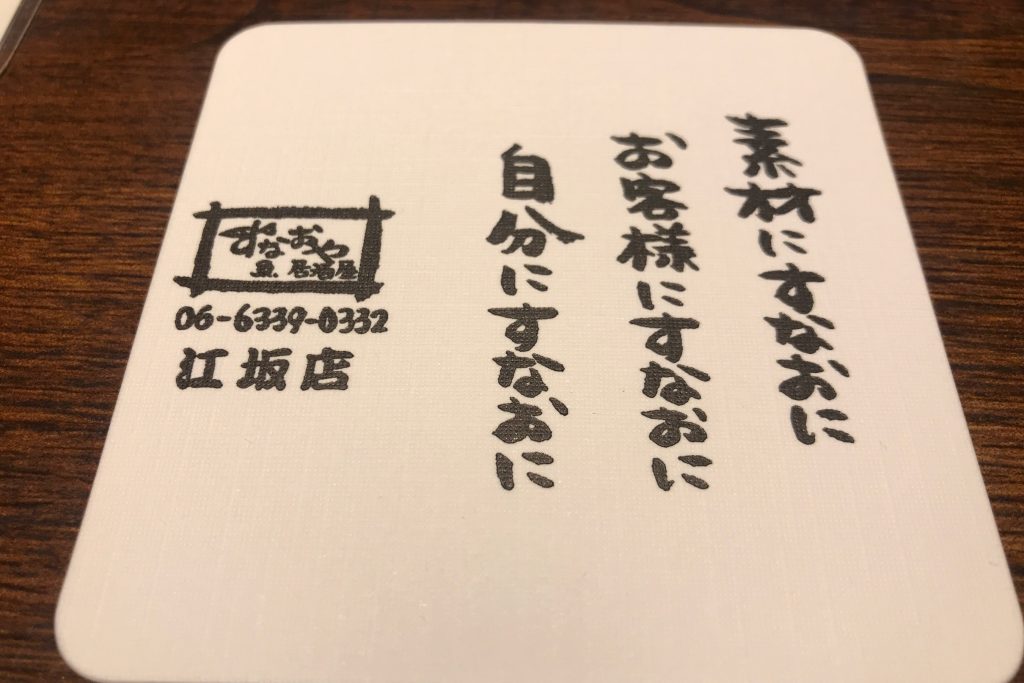 素材にすなおに
お客様にすなおに
自分にすなおに
すなおや
魚 居酒屋
06-6339-0332
江坂店